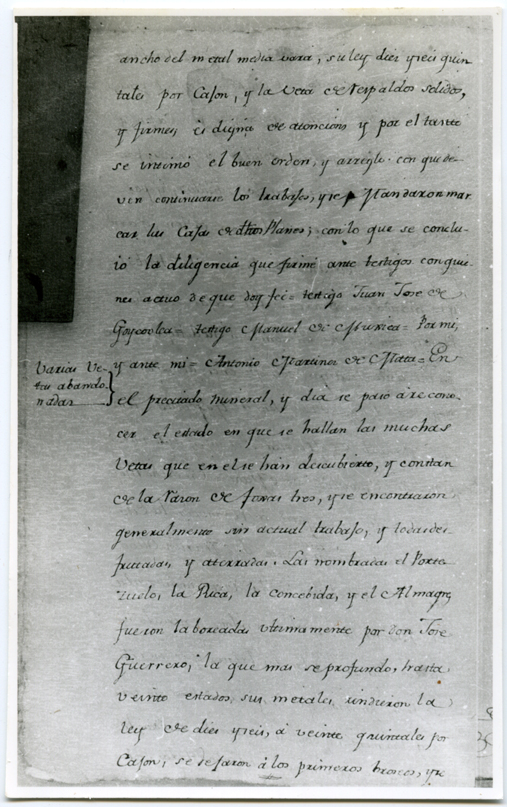 ancho del metal media vara, su ley dies y seis quin
tales por Cajon, y la Veta de Respaldos solidos,
y firmes es digna de atencions y por el tanto
se intimó el buen orden, y arreglo con que de-
vin continuarse los trabajos, y se Mandaron mar
car las Casas de dhos Planes; con lo que se conclu-
ió la diligencia que firmé ante testigos con quie-
nes actuo de que doy fe= testigo Juan Jose de
Goycoolea= testigo Manuel de Muxica= Por mi,
y ante mi= Antonio Martines de Matta= En
Varias Ve-
tas abando
nadas
el precitado mineral, y dia se paso á recono-
cer el estado en que se hallan las muchas
Vetas que en el se han descubierto, y constan
de la Razon de foxas tres, y se encontraron
generalmente sin actual trabajo, y todas des-
frutadas y aterradas. Las nombradas el Porte-
zuelo, la Rica, la concebida, y el Almagre
fueron laboreadas ultimamente por don Jose
Guerrero; la que mas se profundo, hasta
veinte estados, sus metales rindieron la
ley de dies y seis, á veinte quintales por
Cajon; se dejaron á los primeros broceos, y se